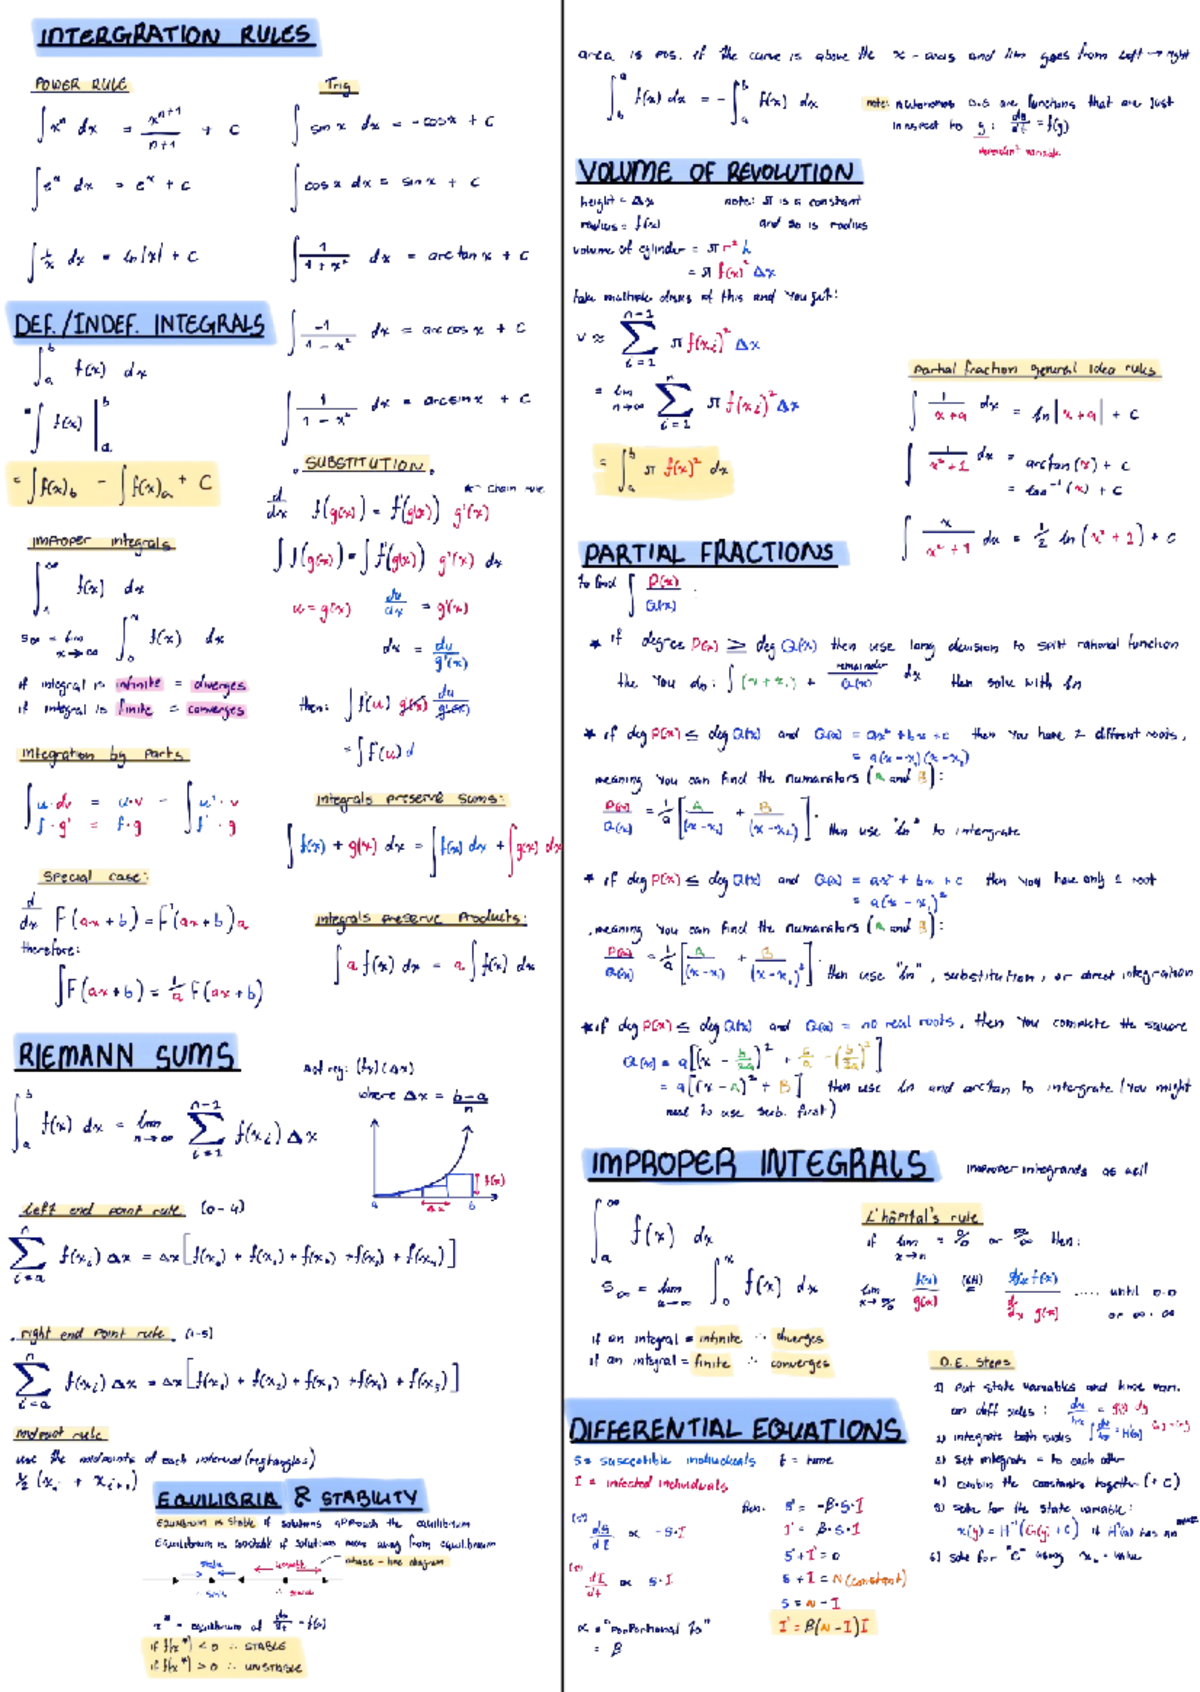 INTERGRATION RULES
POWER RULE
∫ xⁿ dx = xⁿ⁺¹/n+1 + C
∫ eˣ dx = eˣ + C
∫ 1/x dx = ln|x| + C
Trig
∫ sin x dx = -cos x + C
∫ cos x dx = sin x + C
∫ 1/1+x² dx = arctan x + C
∫ -1/1-x² dx = arccos x + C
∫ 1/1-x² dx = arcsin x + C
DEF./INDEF. INTEGRALS
∫ₐᵇ f(x) dx
= ∫ f(x) |ₐᵇ
= ∫f(x)b - ∫f(x)a + C
improper integrals
∫₁^∞ f(x) dx
S∞ = lim x→∞ ∫₀ˣ f(x) dx
if integral is infinite = diverges
if integral is finite = converges
integration by parts
∫ u·dv = u·v - ∫ u'·v
f·g' = f·g f'·g
special case:
d/dx F(ax+b) = F'(ax+b)a
therefore:
∫F(ax+b) = 1/a F(ax+b)
SUBSTITUTION
* chain rule
d/dx f(g(x)) = f'(g(x)) g'(x)
∫ f(g(x)) = ∫ f'(g(x)) g'(x) dx
u = g(x) du/dx = g'(x)
dx = du/g'(x)
then: ∫ f'(u) g'(x) du/g'(x)
= ∫ f'(u) d
integrals preserve sums:
∫ f(x) + g(x) dx = ∫ f(x) dx + ∫ g(x) dx
integrals preserve products:
∫ a f(x) dx = a ∫ f(x) dx
RIEMANN SUMS
∫ₐᵇ f(x) dx = lim n→∞ Σ i=1 n-1 f(xᵢ) Δx
(fx)(Δx)
where Δx = b-a/n
f(x)
a Δx b
left end point rule (0-4)
Σ i=a n f(xᵢ) Δx = Δx[f(x₀) + f(x₁) + f(x₂) + f(x₃) + f(x₄)]
right end point rule (1-5)
Σ i=a n f(xᵢ) Δx = Δx[f(x₁) + f(x₂) + f(x₃) + f(x₄) + f(x₅)]
midpoint rule
use the midpoints of each interval (rectangles)
½ (xᵢ + xᵢ₊₁)
EQUILIBRIA & STABILITY
Equilibrium is stable if solutions approach the equilibrium
Equilibrium is unstable if solutions move away from equilibrium
phase-line diagram
x* = equilibrium of dx/dt = f(x)
if f'(x*) < 0 ∴ STABLE
if f'(x*) > 0 ∴ UNSTABLE
area is pos. if the curve is above the x-axis and lim goes from left → right
∫ᵇᵃ f(x) dx = -∫ₐᵇ f(x) dx
note: Autonomous D.E are functions that are just
in respect to y: dy/dt = f(y)
dependent variable
VOLUME OF REVOLUTION
height = Δx note: π is a constant
radius = f(x) and so is radius
volume of cylinder = πr²h
= πf(x)²Δx
take multiple discs of this and you get:
V ≈ Σ i=1 n-1 π f(xᵢ)² Δx
= lim n→∞ Σ i=1 n π f(xᵢ)² Δx
= ∫ₐᵇ π f(x)² dx
partial fraction general idea rules
∫ 1/x+a dx = ln|x+a| + C
∫ 1/x²+1 dx = arctan(x) + C
= tan⁻¹(x) + C
∫ x/x²+1 dx = ½ ln(x²+1) + C
PARTIAL FRACTIONS
to find ∫ P(x)/Q(x)
* if degree P(x) ≥ deg Q(x) then use long division to split rational function
the you do: ∫ (x+x₁) + remainder/Q(x) dx then solve with ln
* if deg P(x) ≤ deg Q(x) and Q(x) = ax² + bx + c then you have 2 diffrent roots,
= a(x-x₁)(x-x₂)
meaning you can find the numarators (A and B):
P(x)/Q(x) = 1/a [A/(x-x₁) + B/(x-x₂)]. then use "ln" to intergrate
* if deg P(x) ≤ deg Q(x) and Q(x) = ax² + bx + c then you have only 1 root
= a(x-x₁)²
meaning you can find the numarators (A and B):
P(x)/Q(x) = 1/a [A/(x-x₁) + B/(x-x₁)²]. then use "ln", substitution, or direct integration
* if deg P(x) ≤ deg Q(x) and Q(x) = no real roots, then you complete the square
Q(x) = a[(x - b/2a)² + c/a - (b/2a)²]
= a[(x-A)² + B] then use ln and arctan to intergrate (you might
need to use sub. first)
IMPROPER INTEGRALS
improper integrands as well
∫ₐ^∞ f(x) dx
S∞ = lim x→∞ ∫₀ˣ f(x) dx
if an integral = infinite ∴ diverges
if an integral = finite ∴ converges
L'hôpital's rule
if lim x→n = 0/0 or ∞/∞ then:
f(x)/g(x) (LH) = d/dx f(x) / d/dx g(x) ..... until
DIFFERENTIAL EQUATIONS
S = susceptible individuals t = time
I = infected individuals
dS/dt ∝ -S·I
dI/dt ∝ S·I
∝ = "porportional to"
= β
then: S' = -β·S·I
I' = β·S·I
S' + I' = 0
S + I = N (constant)
S = N - I
I' = β(N-I)I
D.E. steps
1) put state variables and time var.
on diff sides:
2) integrate both sides
3) set integrals = to each other
4) combin the constants together (+C)
5) solve for the state variable:
x(y) = H⁻¹(G(y) + C) if H(x) has an
6) solve for "C" using x₀ value